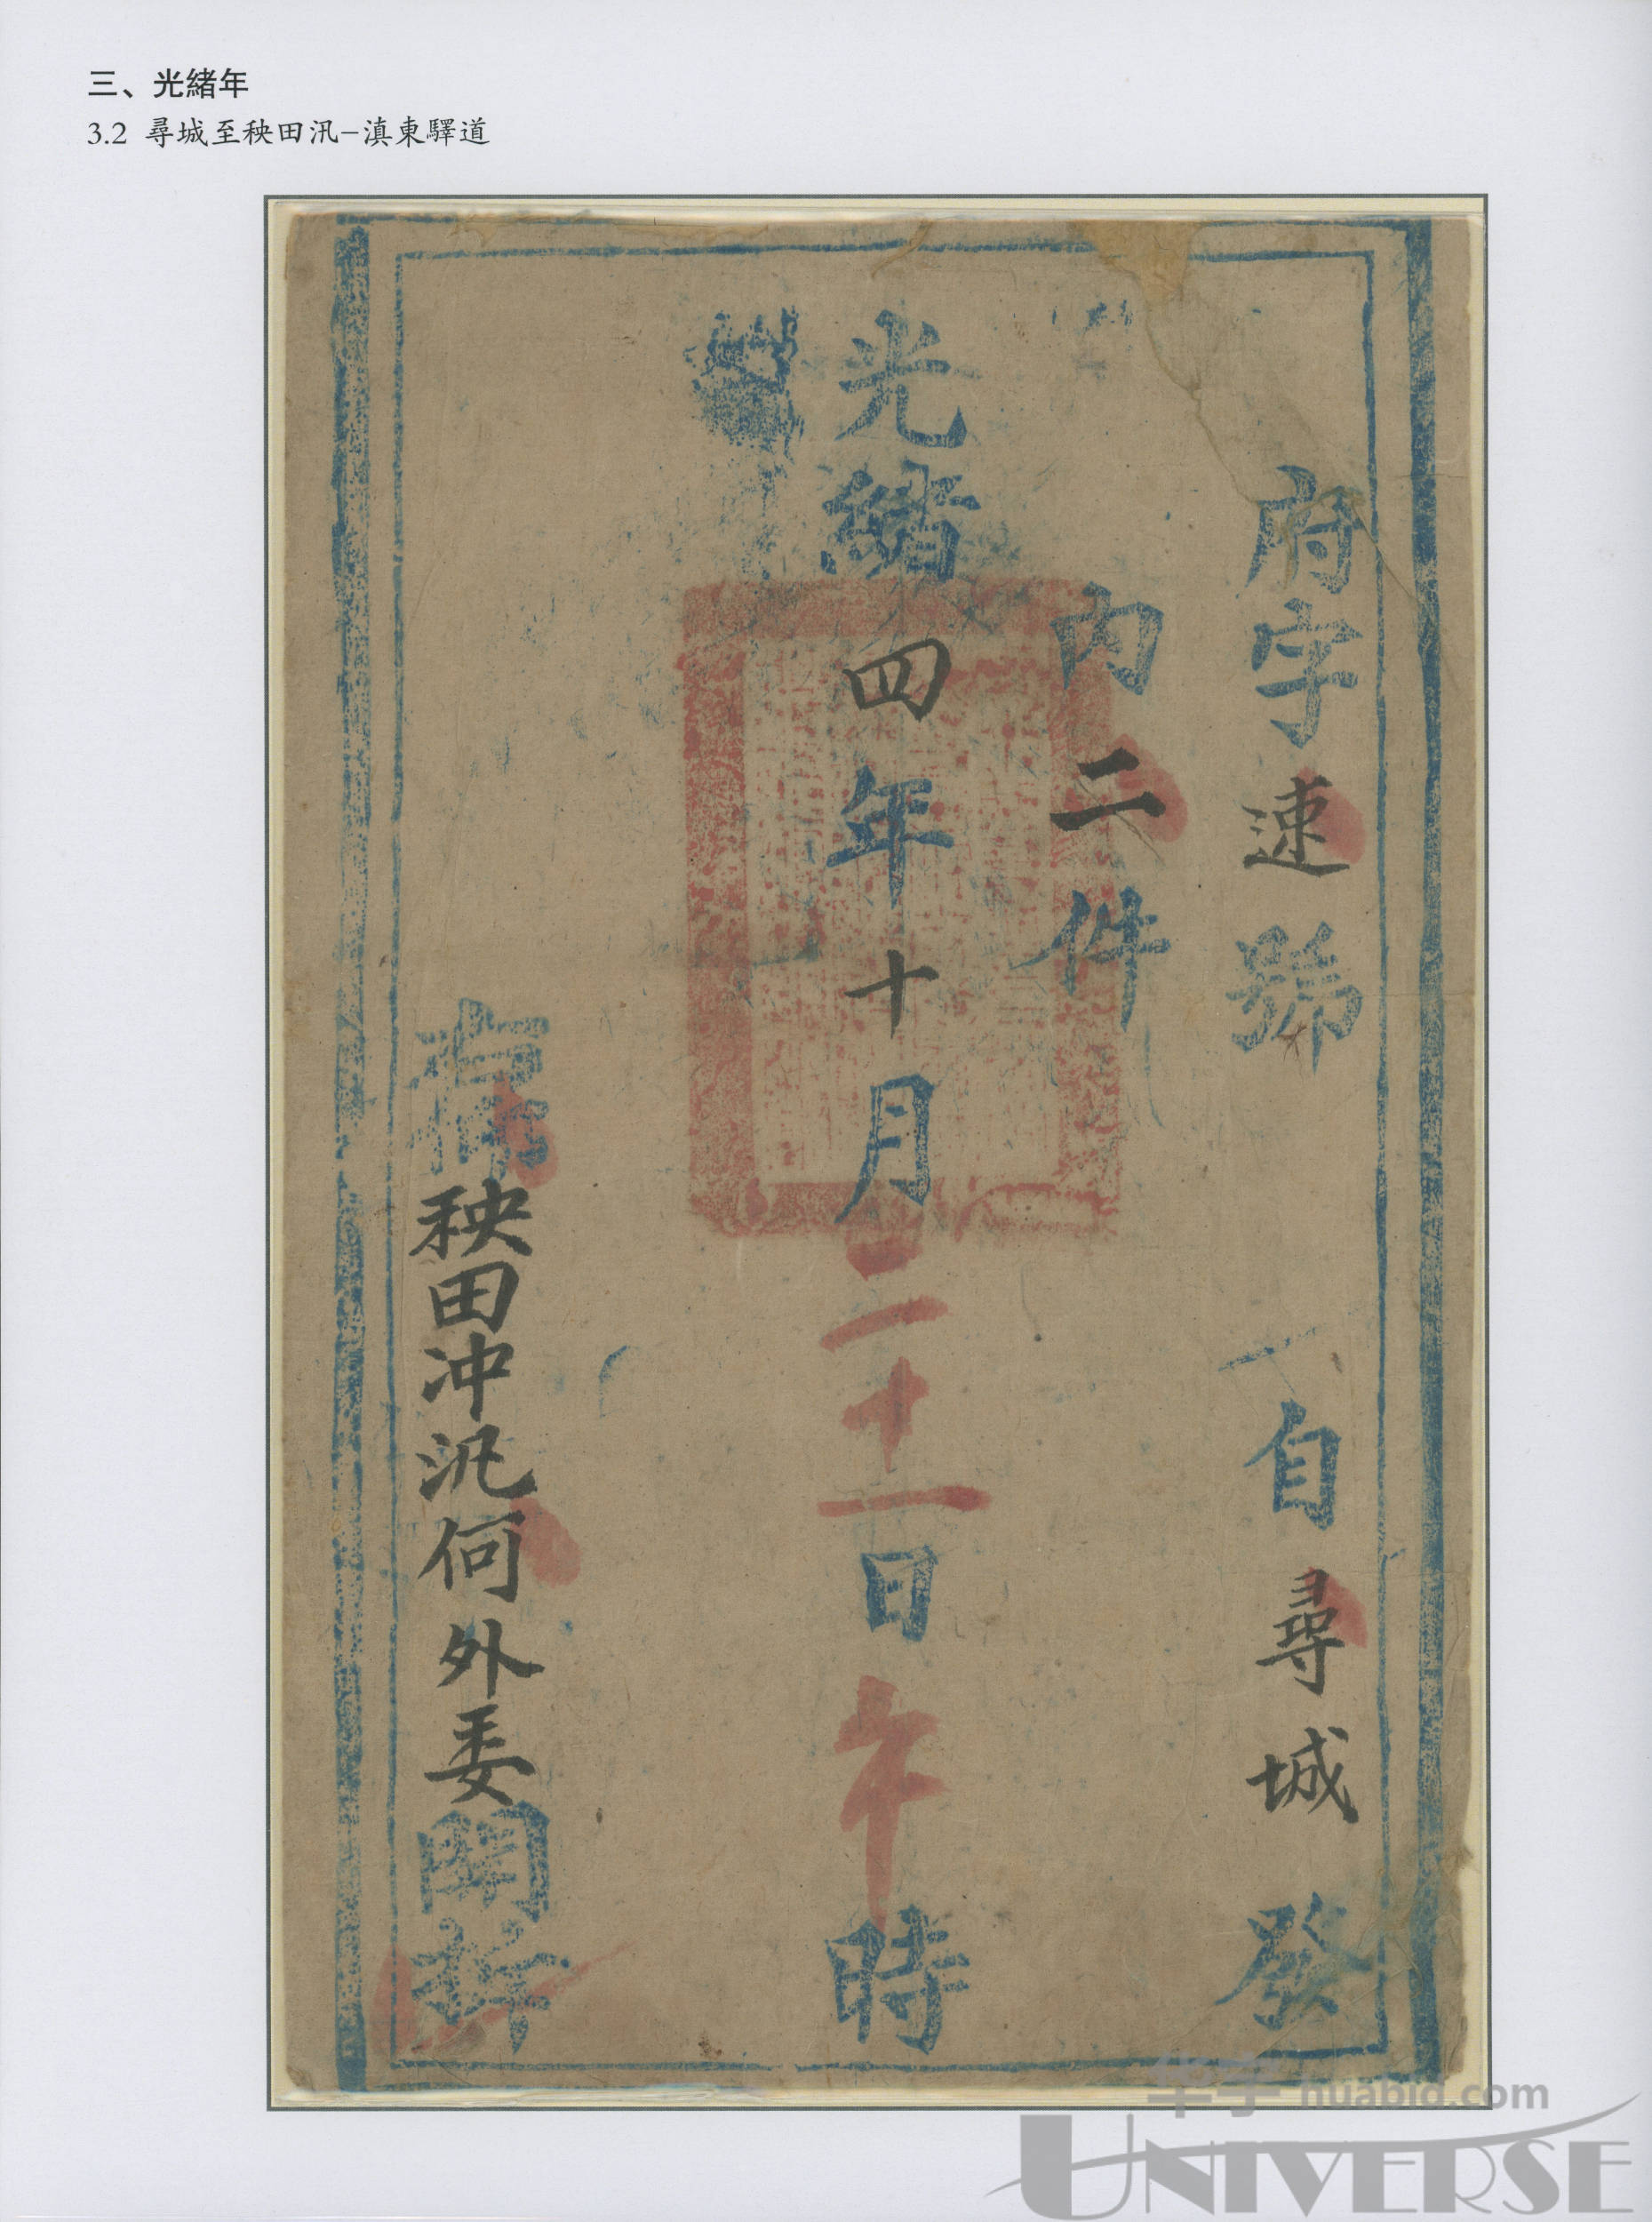 三、光緒年
3.2 尋城至秧田汛–滇東驛道
府字速號 自尋城發
內二件
光緒四年十月二十一日午時
右仰秧田冲汛何外委開拆
华宇 huabid.com
UNIVERSE